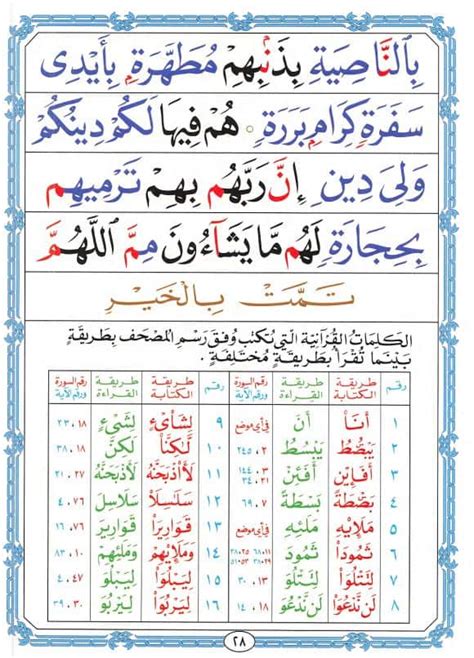 بِالنَّاصِيَةِ بِذَنْبِهِمْ مُطَهَّرَةٍ بِأَيْدِى
سَفَرَةٍ كِرَامٍ بَرَرَةٍ ○ هُمْ فِيهَا لَكُمْ دِينُكُمْ
وَلِىَ دِينِ إِنَّ رَبَّهُم بِهِمْ تَرْمِيهِم
بِحِجَارَةٍ لَهُم مَا يَشَآءُونَ مِمَّ ٱللَّهُمَّ
تَمَّتْ بِالْخَيْرِ
الكلِمَاتُ القُرآنيَةُ الَّتِي تُكتَبُ وُفقَ رَسْمِ المُصْحَفِ بِطَرِيقَةٍ
بَيْنَمَا تُقْرَأُ بِطَرِيقَةٍ مُخْتَلِفَةٍ.
رقم طريقة الكتابة طريقة القراءة رقم السورة ورقم الآية رقم طريقة الكتابة طريقة القراءة رقم السورة ورقم الآية
١ أَنَا أَنَ في أي موضع ٩ لِشَاْىْءٍ لِشَىْءٍ ١٨ ، ٢٣
٢ يَبْصُطُ يَبْسُطُ ٢ ، ٢٤٥ ١٠ لَكِنَّا لَكِنَّ ١٨ ، ٣٨
٣ أَفَإِيْن أَفَئِنْ ٣ ، ١٤٤ ٢١ ، ٣٤ ١١ لَأَاْذْبَحَنَّهُ لَأَذْبَحَنَّهُ ٢٧ ، ٢١
٤ بَصْطَةً بَسْطَةً ٧ ، ٦٩ ١٢ سَلَسِلَا سَلَاسِلَ ٧٦ ، ٤
٥ مَلَإِيْهِ مَلَئِهِ في أي موضع ١٣ قَوَارِيرَا قَوَارِيرَ ٧٦ ، ١٦
٦ ثَمُودَا ثَمُودَ ١١ ، ٦٨ ٢٥ ، ٣٨ ٢٩ ، ٣٨ ٥٣ ، ٥١ ١٤ وَمَلَإِيْهِمْ وَمَلَئِهِمْ ١٠ ، ٨٣
٧ لِتَتْلُوَا لِتَتْلُوَ ١٣ ، ٣٠ ١٥ لِيَبْلُوَا لِيَبْلُوَ ٤٧ ، ٤
٨ لَن نَدْعُوَا لَن نَدْعُوَ ١٨ ، ١٤ ١٦ لِيَرْبُوَا لِيَرْبُوَ ٣٠ ، ٣٩
٢٨